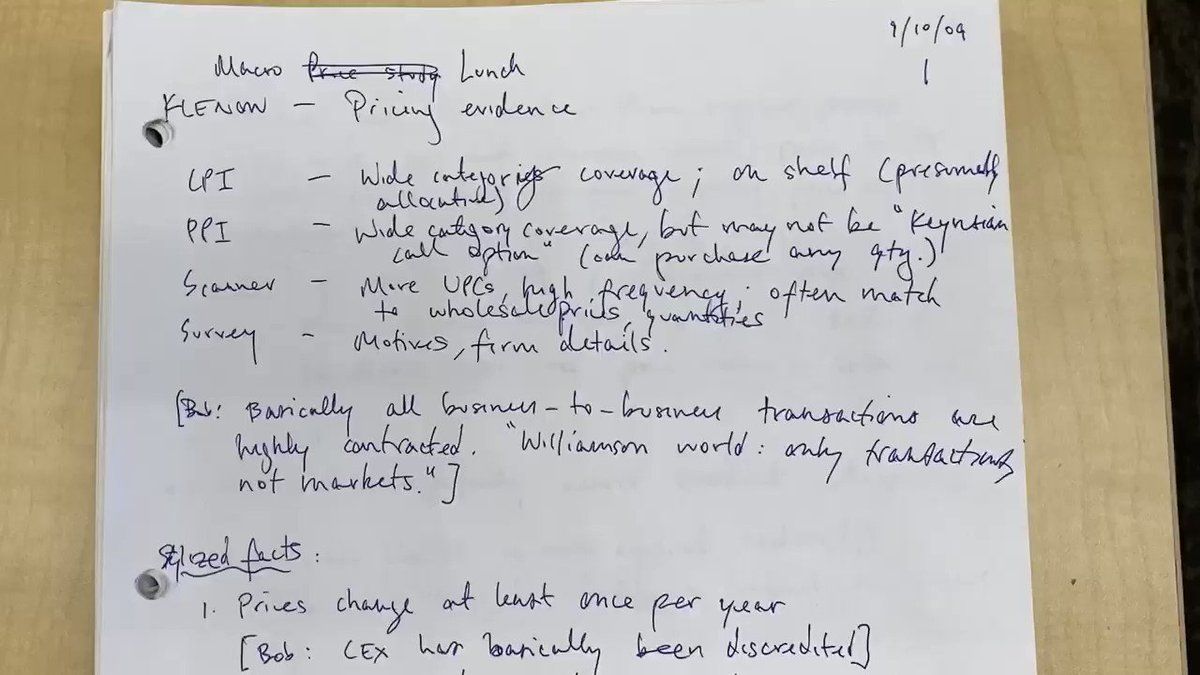 9/10/09
1
Macro Price study Lunch
KLENOW – Pricing evidence
CPI – Wide categories coverage; on shelf (presumably
allocative)
PPI – Wide category coverage, but may not be "Keynsian
call option" (can purchase any qty.)
Scanner – More UPCs, high frequency; often match
to wholesale prices, quantities
Survey – Motives, firm details.
[Bob: Basically all business-to-business transactions are
highly contracted. "Williamson world: only transactions,
not markets."]
Stylized facts:
1. Prices change at least once per year
[Bob: CEX has basically been discredited]